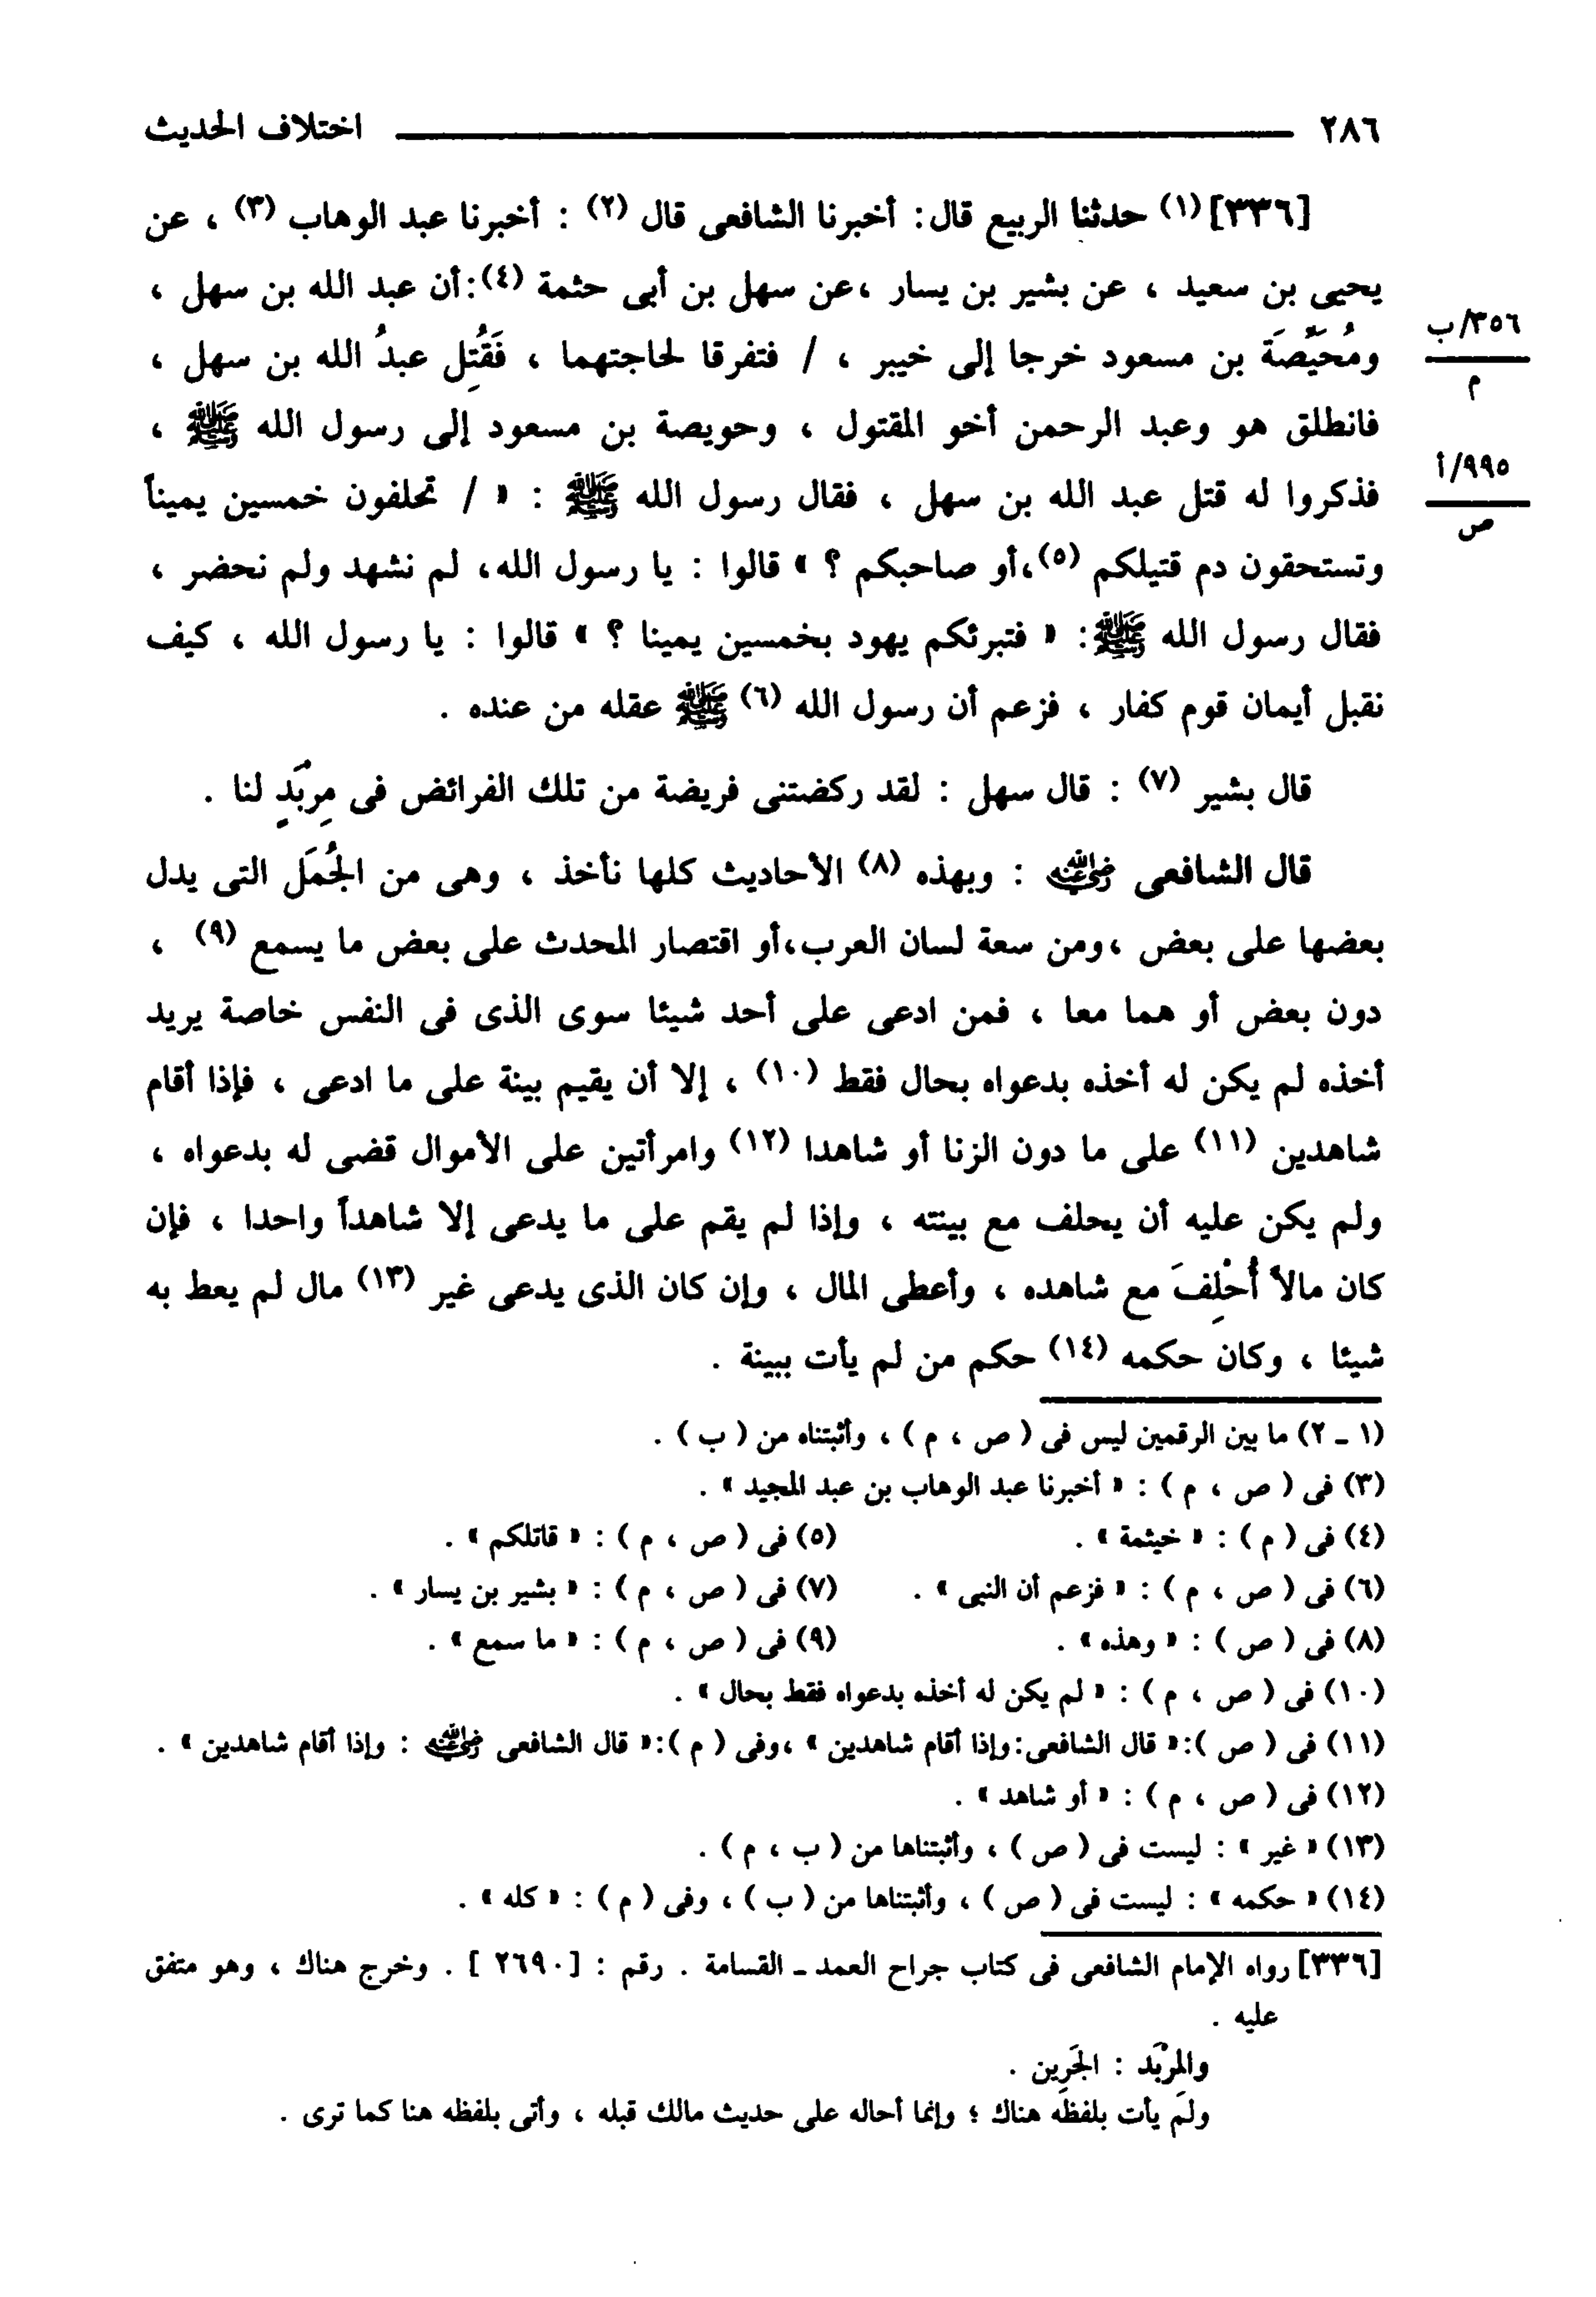 ٢٨٦ اختلاف الحديث
[٣٣٦] (١) حدثنا الربيع قال: أخبرنا الشافعى قال (٢) : أخبرنا عبد الوهاب (٣) ، عن
يحيى بن سعيد ، عن بشير بن يسار ،عن سهل بن أبى حثمة (٤):أن عبد الله بن سهل ،
ومُحَيِّصَة بن مسعود خرجا إلى خيبر ، / فتفرقا لحاجتهما ، فَقُتِل عبدُ الله بن سهل ،
٣٥٦/ب
م
فانطلق هو وعبد الرحمن أخو المقتول ، وحويصة بن مسعود إلى رسول الله ﷺ ،
فذكروا له قتل عبد الله بن سهل ، فقال رسول الله ﷺ : « / تحلفون خمسين يميناً
٩٩٥/أ
ص
وتستحقون دم قتيلكم (٥)،أو صاحبكم ؟ » قالوا : يا رسول الله، لم نشهد ولم نحضر ،
فقال رسول الله ﷺ: « فتبرئكم يهود بخمسين يمينا ؟ » قالوا : يا رسول الله ، كيف
نقبل أيمان قوم كفار ، فزعم أن رسول الله (٦) ﷺ عقله من عنده .
قال بشير (٧) : قال سهل : لقد ركضتنى فريضة من تلك الفرائض فى مِرْبَدٍ لنا .
قال الشافعى رضي الله عنه : وبهذه (٨) الأحاديث كلها نأخذ ، وهى من الجُمَل التى يدل
بعضها على بعض ،ومن سعة لسان العرب،أو اقتصار المحدث على بعض ما يسمع (٩) ،
دون بعض أو هما معا ، فمن ادعى على أحد شيئا سوى الذى فى النفس خاصة يريد
أخذه لم يكن له أخذه بدعواه بحال فقط (١٠) ، إلا أن يقيم بينة على ما ادعى ، فإذا أقام
شاهدين (١١) على ما دون الزنا أو شاهدا (١٢) وامرأتين على الأموال قضى له بدعواه ،
ولم يكن عليه أن يحلف مع بينته ، وإذا لم يقم على ما يدعى إلا شاهداً واحدا ، فإن
كان مالاً أُحْلِفَ مع شاهده ، وأعطى المال ، وإن كان الذى يدعى غير (١٣) مال لم يعط به
شيئا ، وكان حكمه (١٤) حكم من لم يأت ببينة .
(١ ـ ٢) ما بين الرقمين ليس فى ( ص ، م ) ، وأثبتناه من ( ب ) .
(٣) فى ( ص ، م ) : « أخبرنا عبد الوهاب بن عبد المجيد » .
(٤) فى ( م ) : « خيثمة » . (٥) فى ( ص ، م ) : « قاتلكم » .
(٦) فى ( ص ، م ) : « فزعم أن النبى » . (٧) فى ( ص ، م ) : « بشير بن يسار » .
(٨) فى ( ص ) : « وهذه » . (٩) فى ( ص ، م ) : « ما سمع » .
(١٠) فى ( ص ، م ) : « لم يكن له أخذه بدعواه فقط بحال » .
(١١) فى ( ص ):« قال الشافعى:وإذا أقام شاهدين » ،وفى ( م ):« قال الشافعى رضي الله عنه : وإذا أقام شاهدين » .
(١٢) فى ( ص ، م ) : « أو شاهد » .
(١٣) « غير » : ليست فى ( ص ) ، وأثبتناها من ( ب ، م ) .
(١٤) « حكمه » : ليست فى ( ص ) ، وأثبتناها من ( ب ) ، وفى ( م ) : « كله » .
[٣٣٦] رواه الإمام الشافعى فى كتاب جراح العمد ـ القسامة . رقم : [ ٢٦٩٠ ] . وخرج هناك ، وهو متفق
عليه .
والمِرْبَد : الجَرِين .
ولم يأت بلفظه هناك ؛ وإنما أحاله على حديث مالك قبله ، وأتى بلفظه هنا كما ترى .